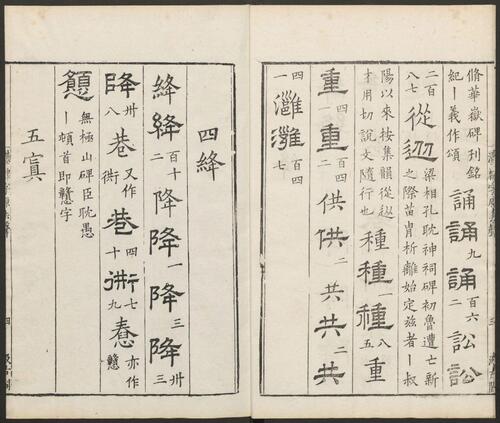 脩華嶽碑刋銘
紀丨義作頌
誦誦九誦百六二訟訟
二百八七
從
梁相孔耽神祠碑初魯遭亡新
之際苗胄析離始定兹者丨叔
陽以來按集韻從
才用切說文隨行也
種種一種八五重
重一四重百四四供供二共共二共
一四灉灉百四七
四絳
絳絳百十二降降一降三降卅三
降卅八巷又作衖巷四十衖七九
亦作戇
無極山碑臣耽愚
丨頓首即戇字
五寘